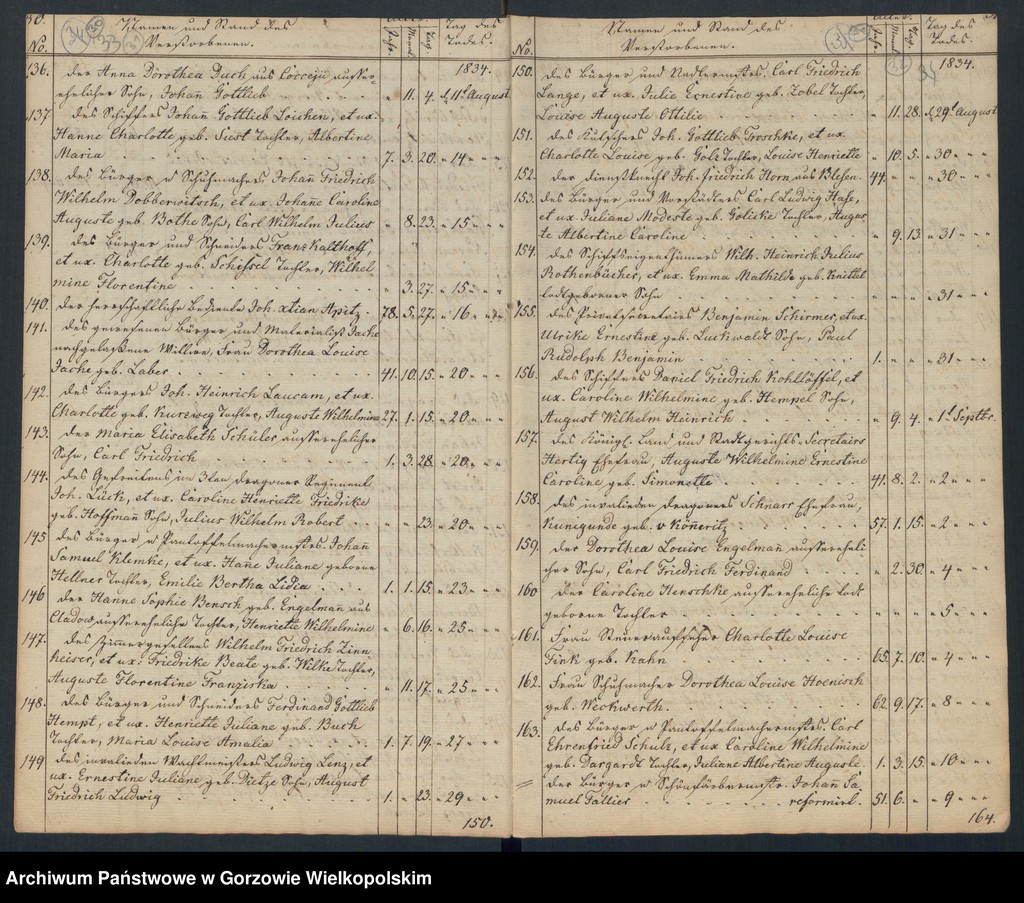 30.
No.
Namen und Stand des
Verstorbenen.
Alter.
Jahr. Mond. Tag.
Tag des
Todes.
1834.
136. Der Anna Dorothea Duch aus Cocceji ausser-
ehelicher Sohn, Johañ Gottlieb " 11. 4. d. 11t August
137. Des Schiffers Johañ Gottlieb Loichen, et ux.
Hanne Charlotte geb. Tochter, Albertine
Maria 7. 3. 20. " 14 " "
138. Des Bürger u Schuhmachers Johañ Friedrich
Wilhelm Dobberwitsch, et ux. Johañe Caroline
Auguste geb. Bothe Sohn, Carl Wilhelm Julius " 8. 23. " 15 " "
139. Des Bürger und Schneiders Franz Kalthoff,
et ux. Charlotte geb. Schissel Tochter, Wilhel
mine Florentine " 3. 27. " 15 " "
140. Der herrschaftliche Bediente Joh. Xtian Apitz 78. 5. 27. " 16 " "
141. Des gewesenen Bürger und Materialist Jache
nachgelaßene Wittwe, Frau Dorothea Louise
Jache geb. Laber 41. 10. 15. " 20 " "
142. Des Bürgers Joh. Heinrich Laucam, et ux.
Charlotte geb. Kurzweg Tochter, Auguste Wilhelmine 27. 1. 15. " 20 " "
143. Der Maria Elisabeth Schüler ausserehelicher
Sohn, Carl Friedrich 1. 3. 28. " 20 " "
144. Des Gefreiten im 3ten Dragoner Regiment
Joh. Lück, et ux. Caroline Henriette Friedrike
geb. Hoffman Sohn, Julius Wilhelm Robert " " 23. " 20 " "
145 Des Bürger u Pantoffelmachermstrs. Johañ
Samuel Klemke, et ux. Hañe Juliane geborne
Hellner Tochter, Emilie Bertha Lidia 1. 1. 15. " 23 " "
146 Der Hanne Sophie Bensch geb. Engelmañ aus
Cladow, aussereheliche Tochter, Henriette Wilhelmine " 6. 16. " 25 " "
147. Des Zimmergesellens Wilhelm Friedrich Zinn
heiser, et ux. Friedrike Beate geb. Wilke Tochter,
Auguste Florentine Franziska " 11. 17. " 25 " "
148. Des Bürger und Schneiders Ferdinand Gottlieb
Hempt, et ux. Henriette Juliane geb. Buch
Tochter, Maria Louise Amalia 1. 7. 19. " 27 " "
149 Des invaliden Wachtmeisters Ludwig Lenz, et
ux. Ernestine Juliane geb. Dietze Sohn, August
Friedrich Ludwig 1. " 23. " 29 " "
150.
No.
Namen und Stand des
Verstorbenen.
Alter.
Jahr. Mond. Tag.
Tag des
Todes.
1834.
150. Des Bürger und Nadlermstrs. Carl Friedrich
Lange, et ux. Julie Ernestine geb. Zobel Tochter,
Louise Auguste Ottilie " 11. 28. d. 29t August
151. Des Kutschers Joh. Gottlieb Troschke, et ux.
Charlotte Louise geb. Golz Tochter, Louise Henriette " 10. 5. " 30 " "
152. Der Dienstknecht Joh. Friedrich Horn aus Blesen. 44. " " " 30 " "
153. Des Bürger und Vorstädters Carl Ludwig Hase,
et ux. Juliane Modeste geb. Goliske Tochter, Augus
te Albertine Caroline " 9. 13. " 31 " "
154. Des Schiffseigenthümers Wilh. Heinrich Julius
Rothenbücher, et ux. Emma Mathilde geb. Knittel
todtgeborner Sohn " " " " 31 " "
155. Des Privatsecretairs Benjamin Schirmer, et ux.
Ulrike Ernestine geb. Luckwaldt Sohn, Paul
Rudolph Benjamin 1. " " " 31 " "
156. Des Schiffers Daniel Friedrich Kohllöffel, et
ux. Caroline Wilhelmine geb. Hempel Sohn,
August Wilhelm Heinrich " 9. 4. " 1t Septbr.
157. Des Königl. Land und Stadtgerichts-Secretairs
Hertig Ehefrau, Auguste Wilhelmine Ernestine
Caroline geb. Simonette 41. 8. 2. " 2 " "
158. Des invaliden Dragoners Schnarr Ehefrau,
Kunigunde geb. v Köneritz 57. 1. 15. " 2 " "
159. Der Dorothea Louise Engelmañ ausserehli
cher Sohn, Carl Friedrich Ferdinand " 2. 30. " 4 " "
160 Der Caroline Henschke, aussereheliche todt
geborne Tochter " " " " 5 " "
161. Frau Steueraufseher Charlotte Louise
Fink geb. Kahn 65. 7. 10. " 4 " "
162. Frau Schuhmacher Dorothea Louise Hoenisch
geb. Weckwerth 62. 9. 17. " 8 " "
163. Des Bürger u Pantoffelmachermstrs. Carl
Ehrenfried Schulz, et ux Caroline Wilhelmine
geb. Dargardt Tochter, Juliane Albertine Auguste 1. 3. 15. " 10 " "
= Der Bürger u Schönfärbermstr. Johañ Sa
muel Tattier reformirt. 51. 6. " " 9 " "
164.
Archiwum Państwowe w Gorzowie Wielkopolskim